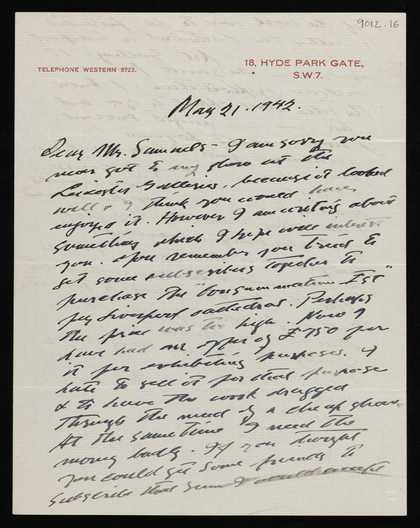 9012.16
TELEPHONE WESTERN 5722.
18, HYDE PARK GATE,
S.W.7.
May 21. 1942.
Dear Mr. Samuels - I am sorry you
never got to my show at the
Leicester Galleries, because it looked
well & I think you would have
enjoyed it. However I am writing about
something which I hope will interest
you. You remember you tried to
get some subscribers together to
purchase the "Consummatum Est"
for Liverpool Cathedral. Perhaps
the price was too high. Now I
have had an offer of £750 for
it for exhibiting purposes. I
hate to sell it for that purpose
& to have the work dragged
through the mud of a cheap show.
At the same time I need the
money badly. If you thought
you could get some friends to
subscribe that sum I would accept